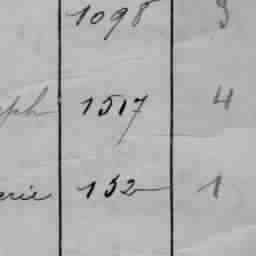 1098 3
ph 1517 4
erie 152 1